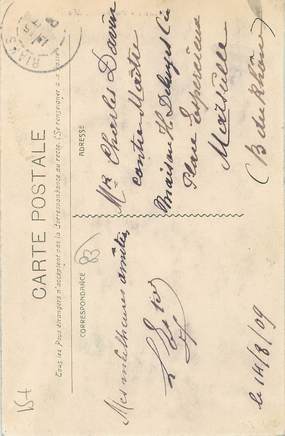 CARTE POSTALE
Tous les Pays étrangers n'acceptent pas la Correspondance au recto. (Se renseigner à la Poste)
CORRESPONDANCE
ADRESSE
83
Mes meilleures amitiés
le 14/8/09
Mr Charles Davin
contre-Maître
Maison H.
Place
Marseille
(B du Rhône)
RIANS